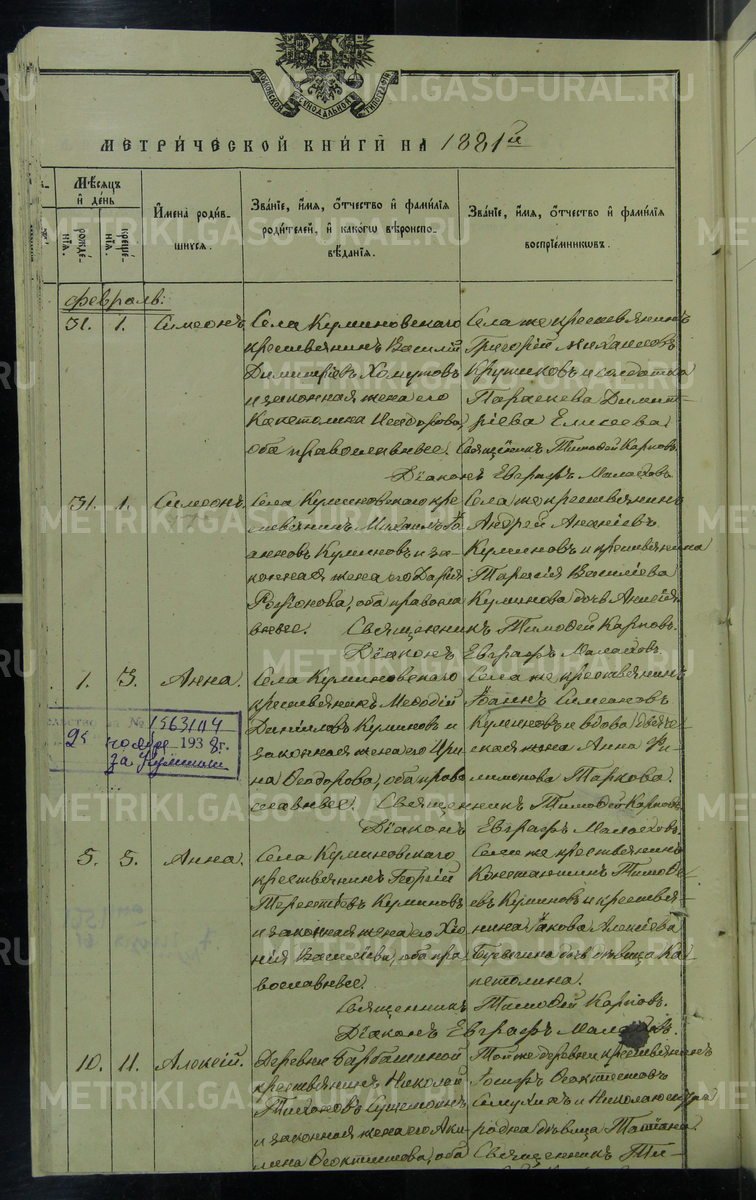 МОСКОВСКОЙ СѴНОДАЛЬНОЙ ТИПОГРАФІИ
МЕТРИ́ЧЕСКОЙ КНИ́ГИ НА 1881й
Мѣсяцъ и҆ де́нь
рожде́нїѧ.
креще́нїѧ.
И҆мена роди́вшихсѧ.
Зва́нїе, и҆́мѧ, ѻ҆́тчество и҆ фами́лїѧ родителей, и҆ какогѡ вѣроисповѣданїѧ.
Зва́нїе, и҆́мѧ, ѻ҆́тчество и҆ фами́лїѧ воспрїе́мниковъ.
Февраль:
31. 1. Симеонъ.
Села Куминовскаго
крестьянинъ Василій
Димитріевъ Хомутовъ
и законная жена его
Капетолина Исидорова,
оба православные.
Села же крестьянинъ
Григорій Михайловъ
и солдатка
Параскева Димит-
ріева Елисеева.
Священникъ Тимофей Карповъ.
Діаконъ Евграфъ Малаховъ.
31. 1. Симеонъ.
Села Куминовскаго кре-
стьянинъ Михаилъ Іо-
анновъ Куминовъ и за-
конная жена его Дарія
Родіонова, оба правосла
вные.
Села же крестьянинъ
Андрей Ананіевъ
Куминовъ и крестьянина
Василіева
Куминова дочь Анисія.
Священникъ Тимофей Карповъ.
Діаконъ Евграфъ Малаховъ.
1. 3. Анна.
Села Куминовскаго
крестьянинъ Мефодій
Даниловъ Куминовъ и
законная жена его Ири
на Феодорова, оба право
славные.
Села же крестьянинъ
Іоаннъ Симеоновъ
Куминовъ и вдова
жена Анна Фи
лимонова
Священникъ Тимофей Карповъ.
Діаконъ Евграфъ Малаховъ.
№ 1563104
25 ноября 1938 г.
за
5. 5. Анна.
Села Куминовскаго
крестьянинъ Георгій
Терентіевъ Куминовъ
и законная жена его Хіо
нія Василіева, оба пра
вославные.
Села же крестьянинъ
Константинъ Тимофе-
евъ Куминовъ и крестья-
нина Іакова Алексіева
дочь дѣвица Ка
петолина.
Священникъ Тимофей Карповъ.
Діаконъ Евграфъ Малаховъ.
10. 11. Алексій.
Деревни Барбашиной
крестьянинъ Николай
Тихоновъ
и законная жена его Аки
лина Феоктистова, оба
Той же деревни крестьянинъ
Іосифъ Феоктистовъ
и
родная дѣвица Татіана.
Священникъ Ти-
METRIKI.GASO-URAL.RU